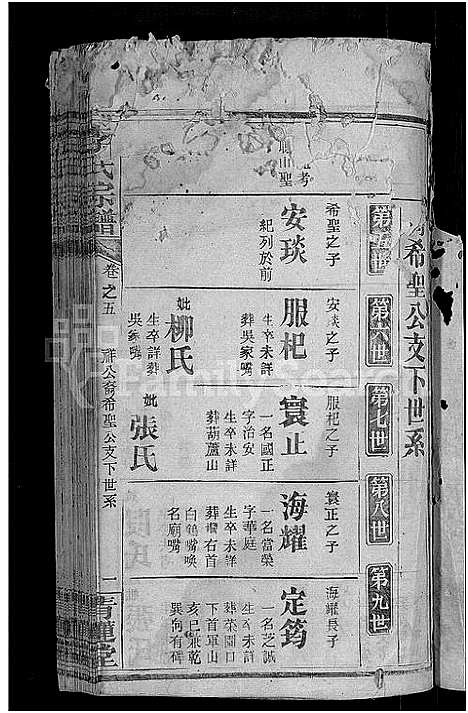 希聖公支下世系
第五世
第六世
第七世
第八世
第九世
希聖之子
安琰
紀列於前
安琰之子
服杞
生卒未詳
葬吳家嘴
妣柳氏
生卒詳葬
吳家嘴
服杞之子
寰止
一名國正
字治安
生卒未詳
葬葫蘆山
妣張氏
寰正之子
海耀
一名當榮
字華庭
生卒未詳
葬壪右首
白鶴嘴喚
名廟嘴
海耀長子
定筠
一名芝誠
生卒未詳
葬菜園口
下首軍山
亥巳兼乾
巽向有碑
氏宗譜
卷之五
祥公裔希聖公支下世系
一
青蓮堂
FamilySearch